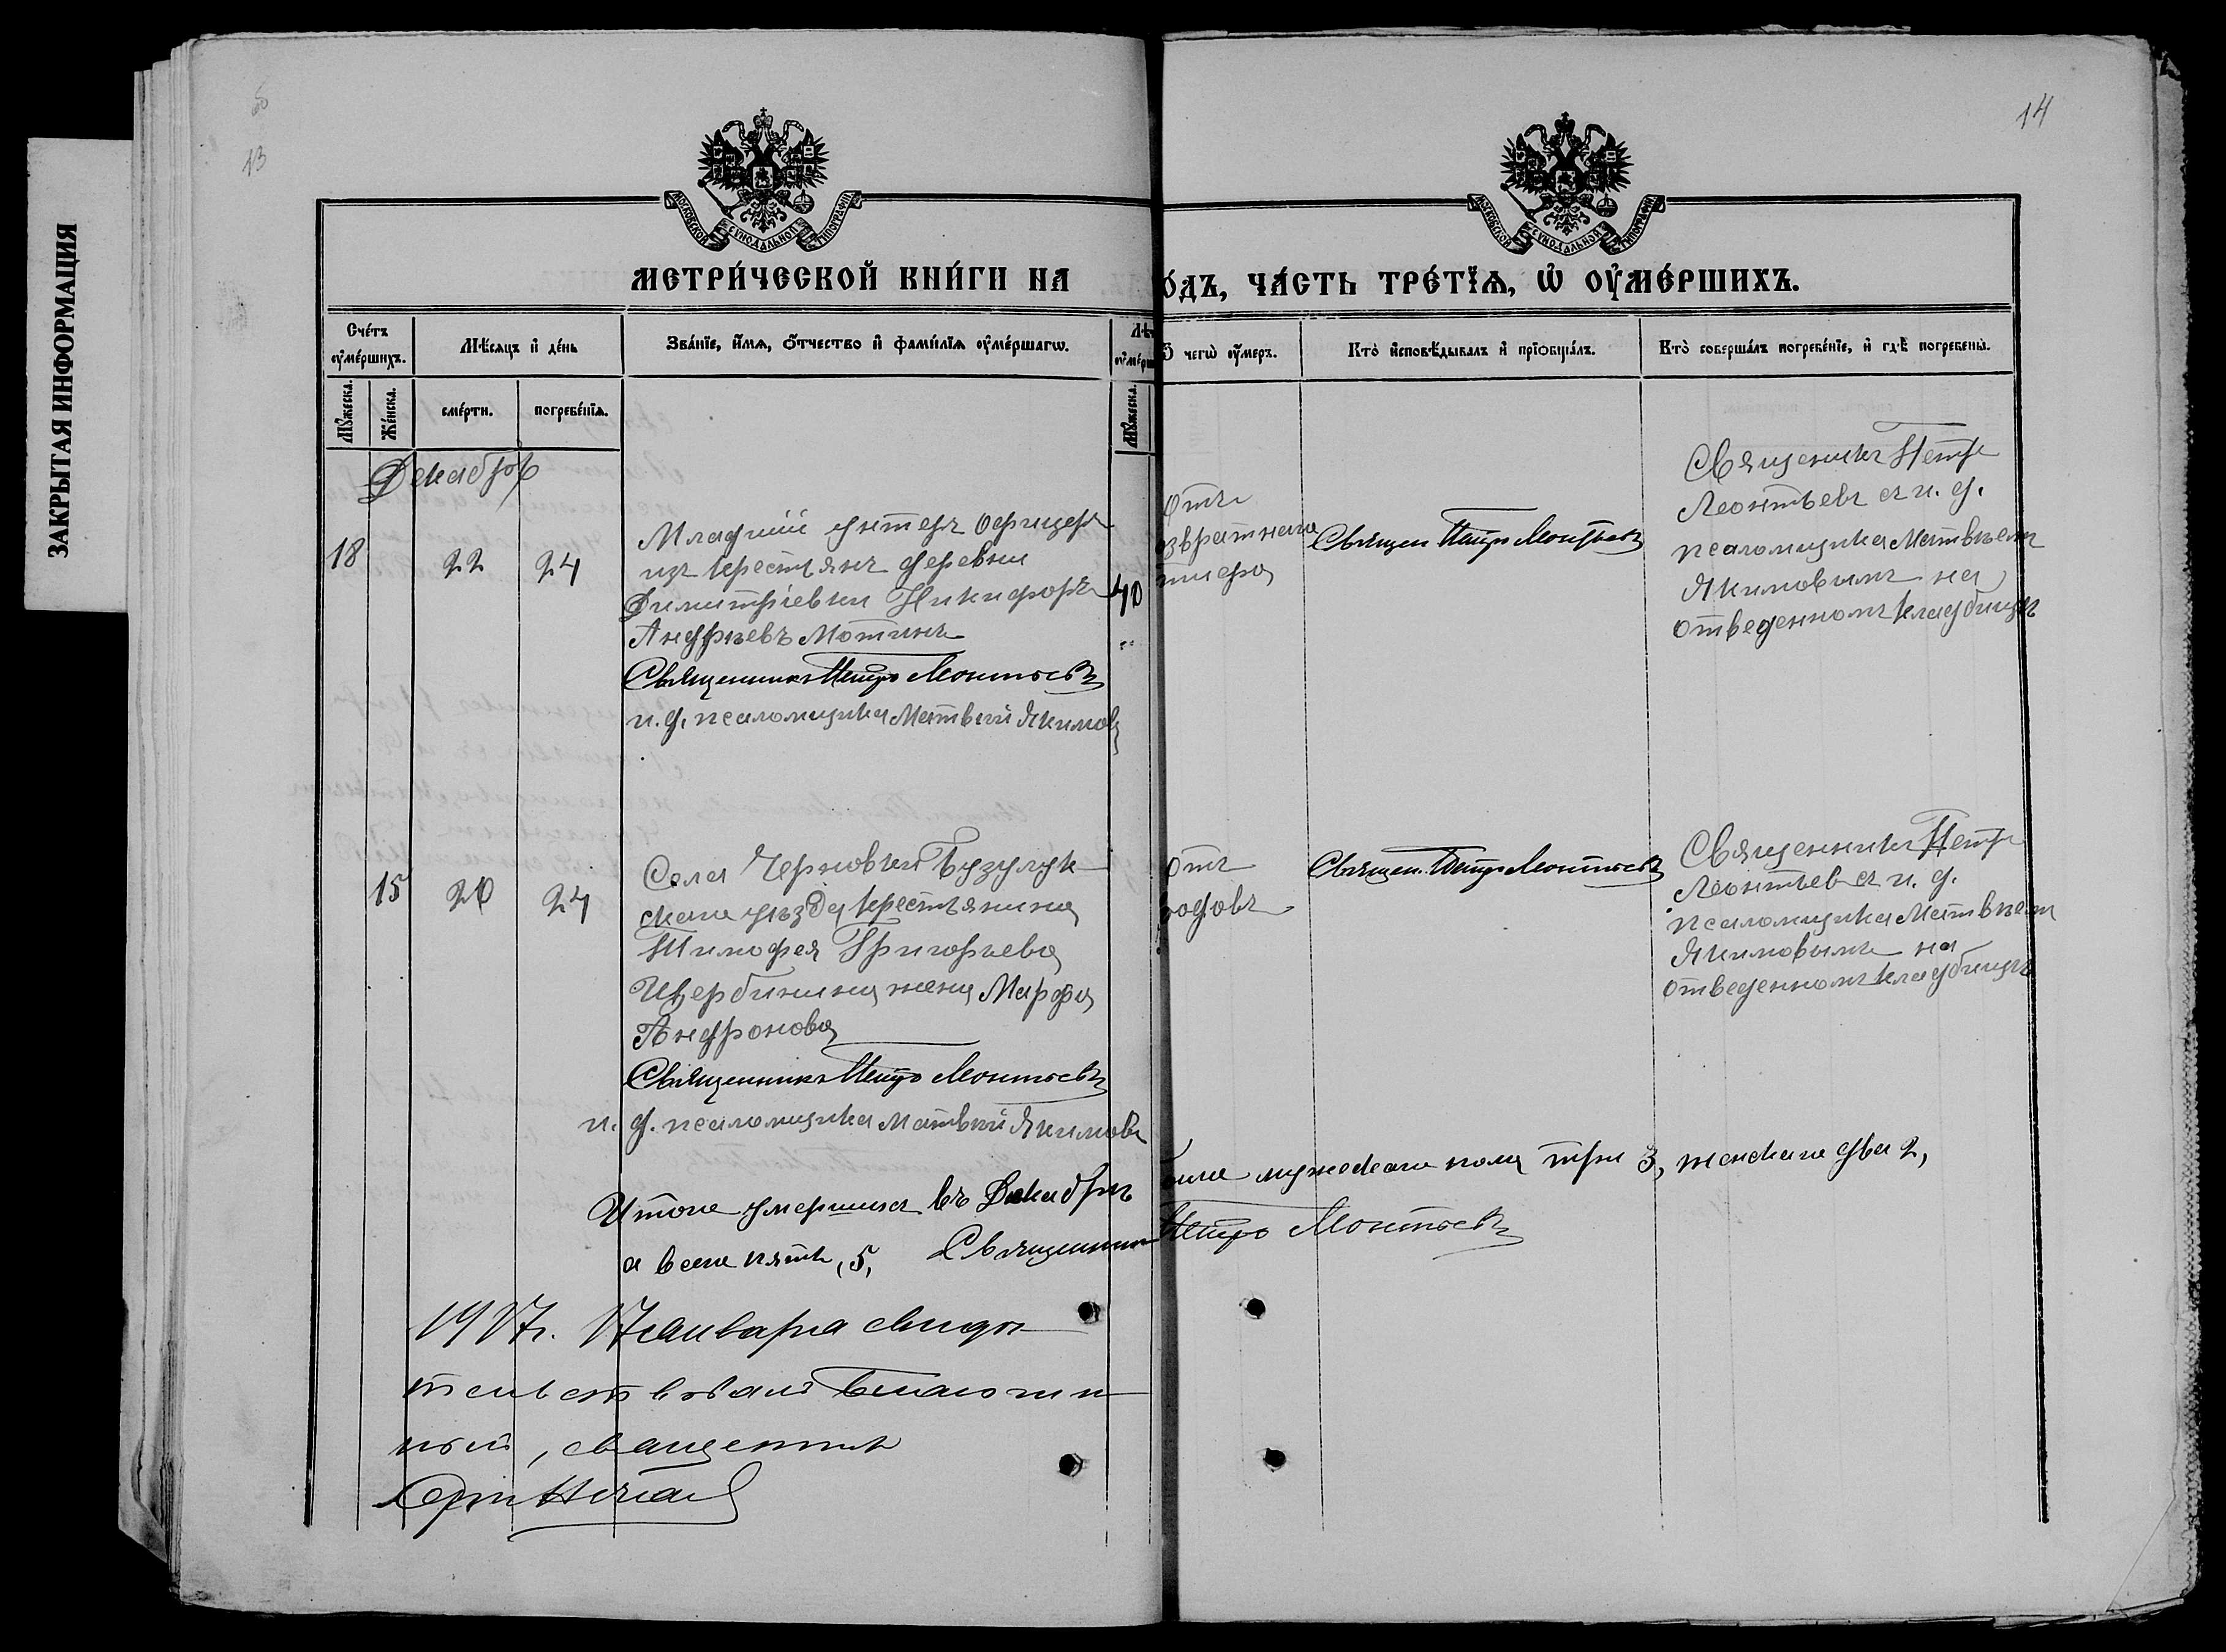 ЗАКРЫТАЯ ИНФОРМАЦИЯ
13
14
МОСКОВСКОЙ СѴНОДАЛЬНОЙ ТИПОГРАФІИ
МОСКОВСКОЙ СѴНОДАЛЬНОЙ ТИПОГРАФІИ
МЕТРИ́ЧЕСКОЙ КНИ́ГИ НА
О́ДЪ, ЧА́СТЬ ТРЕ́ТЇѦ, Ѡ҆ ОУ҆МЕ́РШИХЪ.
Сче́тъ оу҆ме́ршихъ.
Мѣ́сяцъ и҆ де́нь
Зва́нїе, и҆́мѧ, ѻ҆́тчество и҆ фами́лїѧ оу҆ме́ршагѡ.
Лѣ
оу҆ме́рш
чегѡ̀ оу҆́меръ.
Кто̀ и҆сповѣ́дывалъ и҆ прїѻбща́лъ.
Кто̀ соверша́лъ погребе́нїе, и҆ гдѣ̀ погребены̀.
Мꙋ́жеска.
Же́нска.
сме́рти.
погребе́нїѧ.
Мꙋ́жеска.
Декабрь
18
22
24
Младшій унтеръ офицеръ
изъ крестьянъ деревни
Димитріевки Никифоръ
Андреевъ Мотинъ
40
Священникъ Петръ Леонтьевъ
и. д. псаломщика Матвѣй Якимовъ
отъ
озвратнаго
тифа
Священ. Петръ Леонтьевъ
Священникъ Петръ
Леонтьевъ съ и. д.
псаломщика Матвѣемъ
Якимовымъ на
отведенномъ кладбищѣ
15
20
24
Села Черновки Бузулук
скаго уѣзда крестьянина
Тимофея Григорьева
Щербинина жена Марфа
Андронова
Священникъ Петръ Леонтьевъ
и. д. псаломщика Матвѣй Якимовъ
отъ
родовъ
Священ. Петръ Леонтьевъ
Священникъ Петръ
Леонтьевъ съ и. д.
псаломщика Матвѣемъ
Якимовымъ на
отведенномъ кладбищѣ
Итого умершихъ въ Декабрѣ было мужескаго пола три 3, женскаго два 2,
а всего пять, 5, Священникъ Петръ Леонтьевъ
1917 г. 17 января свидѣ
тельствовалъ Благочин
ный, священник